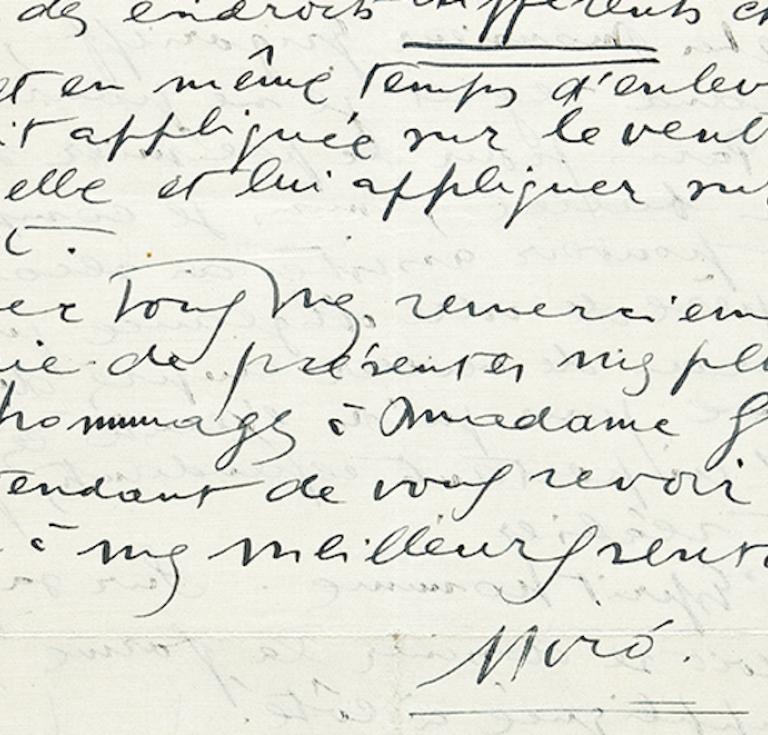 des endroits différents
et en même temps d'enlev
it appliquée sur le vent
elle et lui appliquer su
t.
ec tous mes remerciem
ie de présenter mes pl
hommages à Madame G
endant de vous revoir
à mes meilleurs sent
Miró.